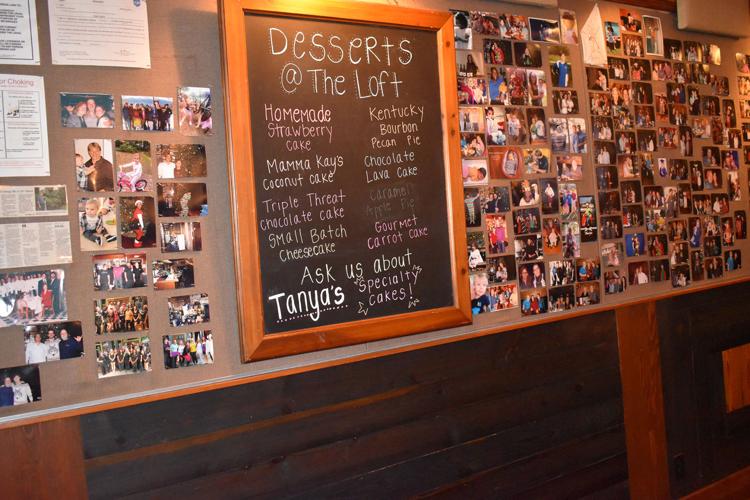 or Choking
Desserts
@ The Loft
Homemade
Strawberry
cake
Mamma Kay's
Coconut cake
Triple Threat
chocolate cake
Small Batch
Cheesecake
Kentucky
Bourbon
Pecan Pie
Chocolate
Lava Cake
Caramel
Apple Pie
Gourmet
Carrot cake
Ask us about
Tanya's
Specialty
Cakes!